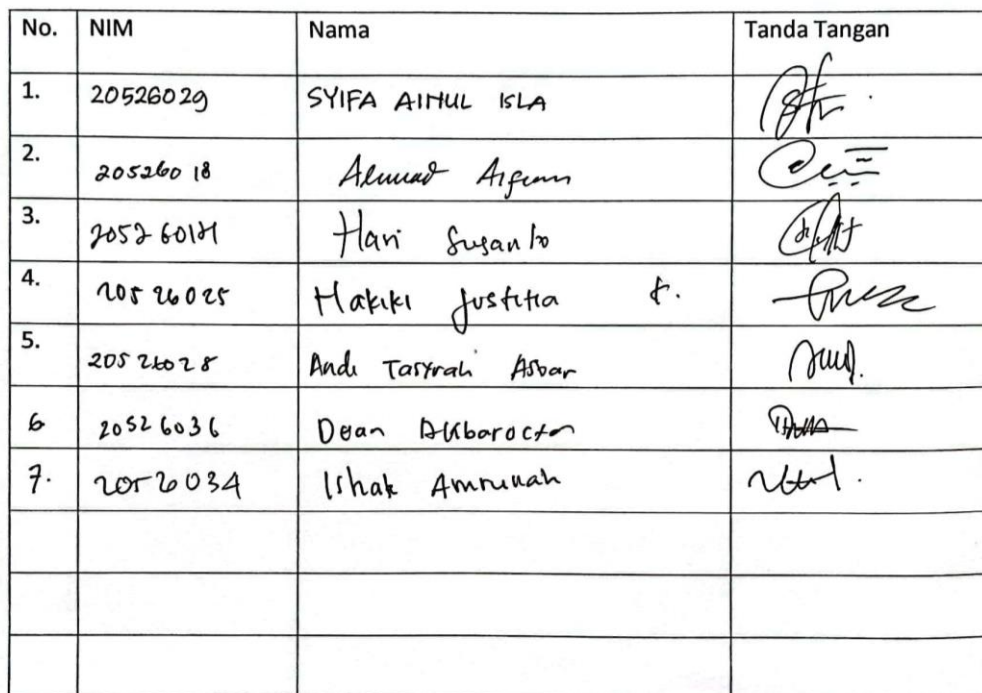 No. NIM Nama Tanda Tangan
1. 20526029 SYIFA AINUL ISLA
2. 20526018 Ahmad
3. Hari Susanto
4. 20526025 Hakiki Justitia F.
5. 20526028 Andi Tasyrah Asbar
6 20526036 Dean Akbarocta
7. 20526034 Ishak Amrullah